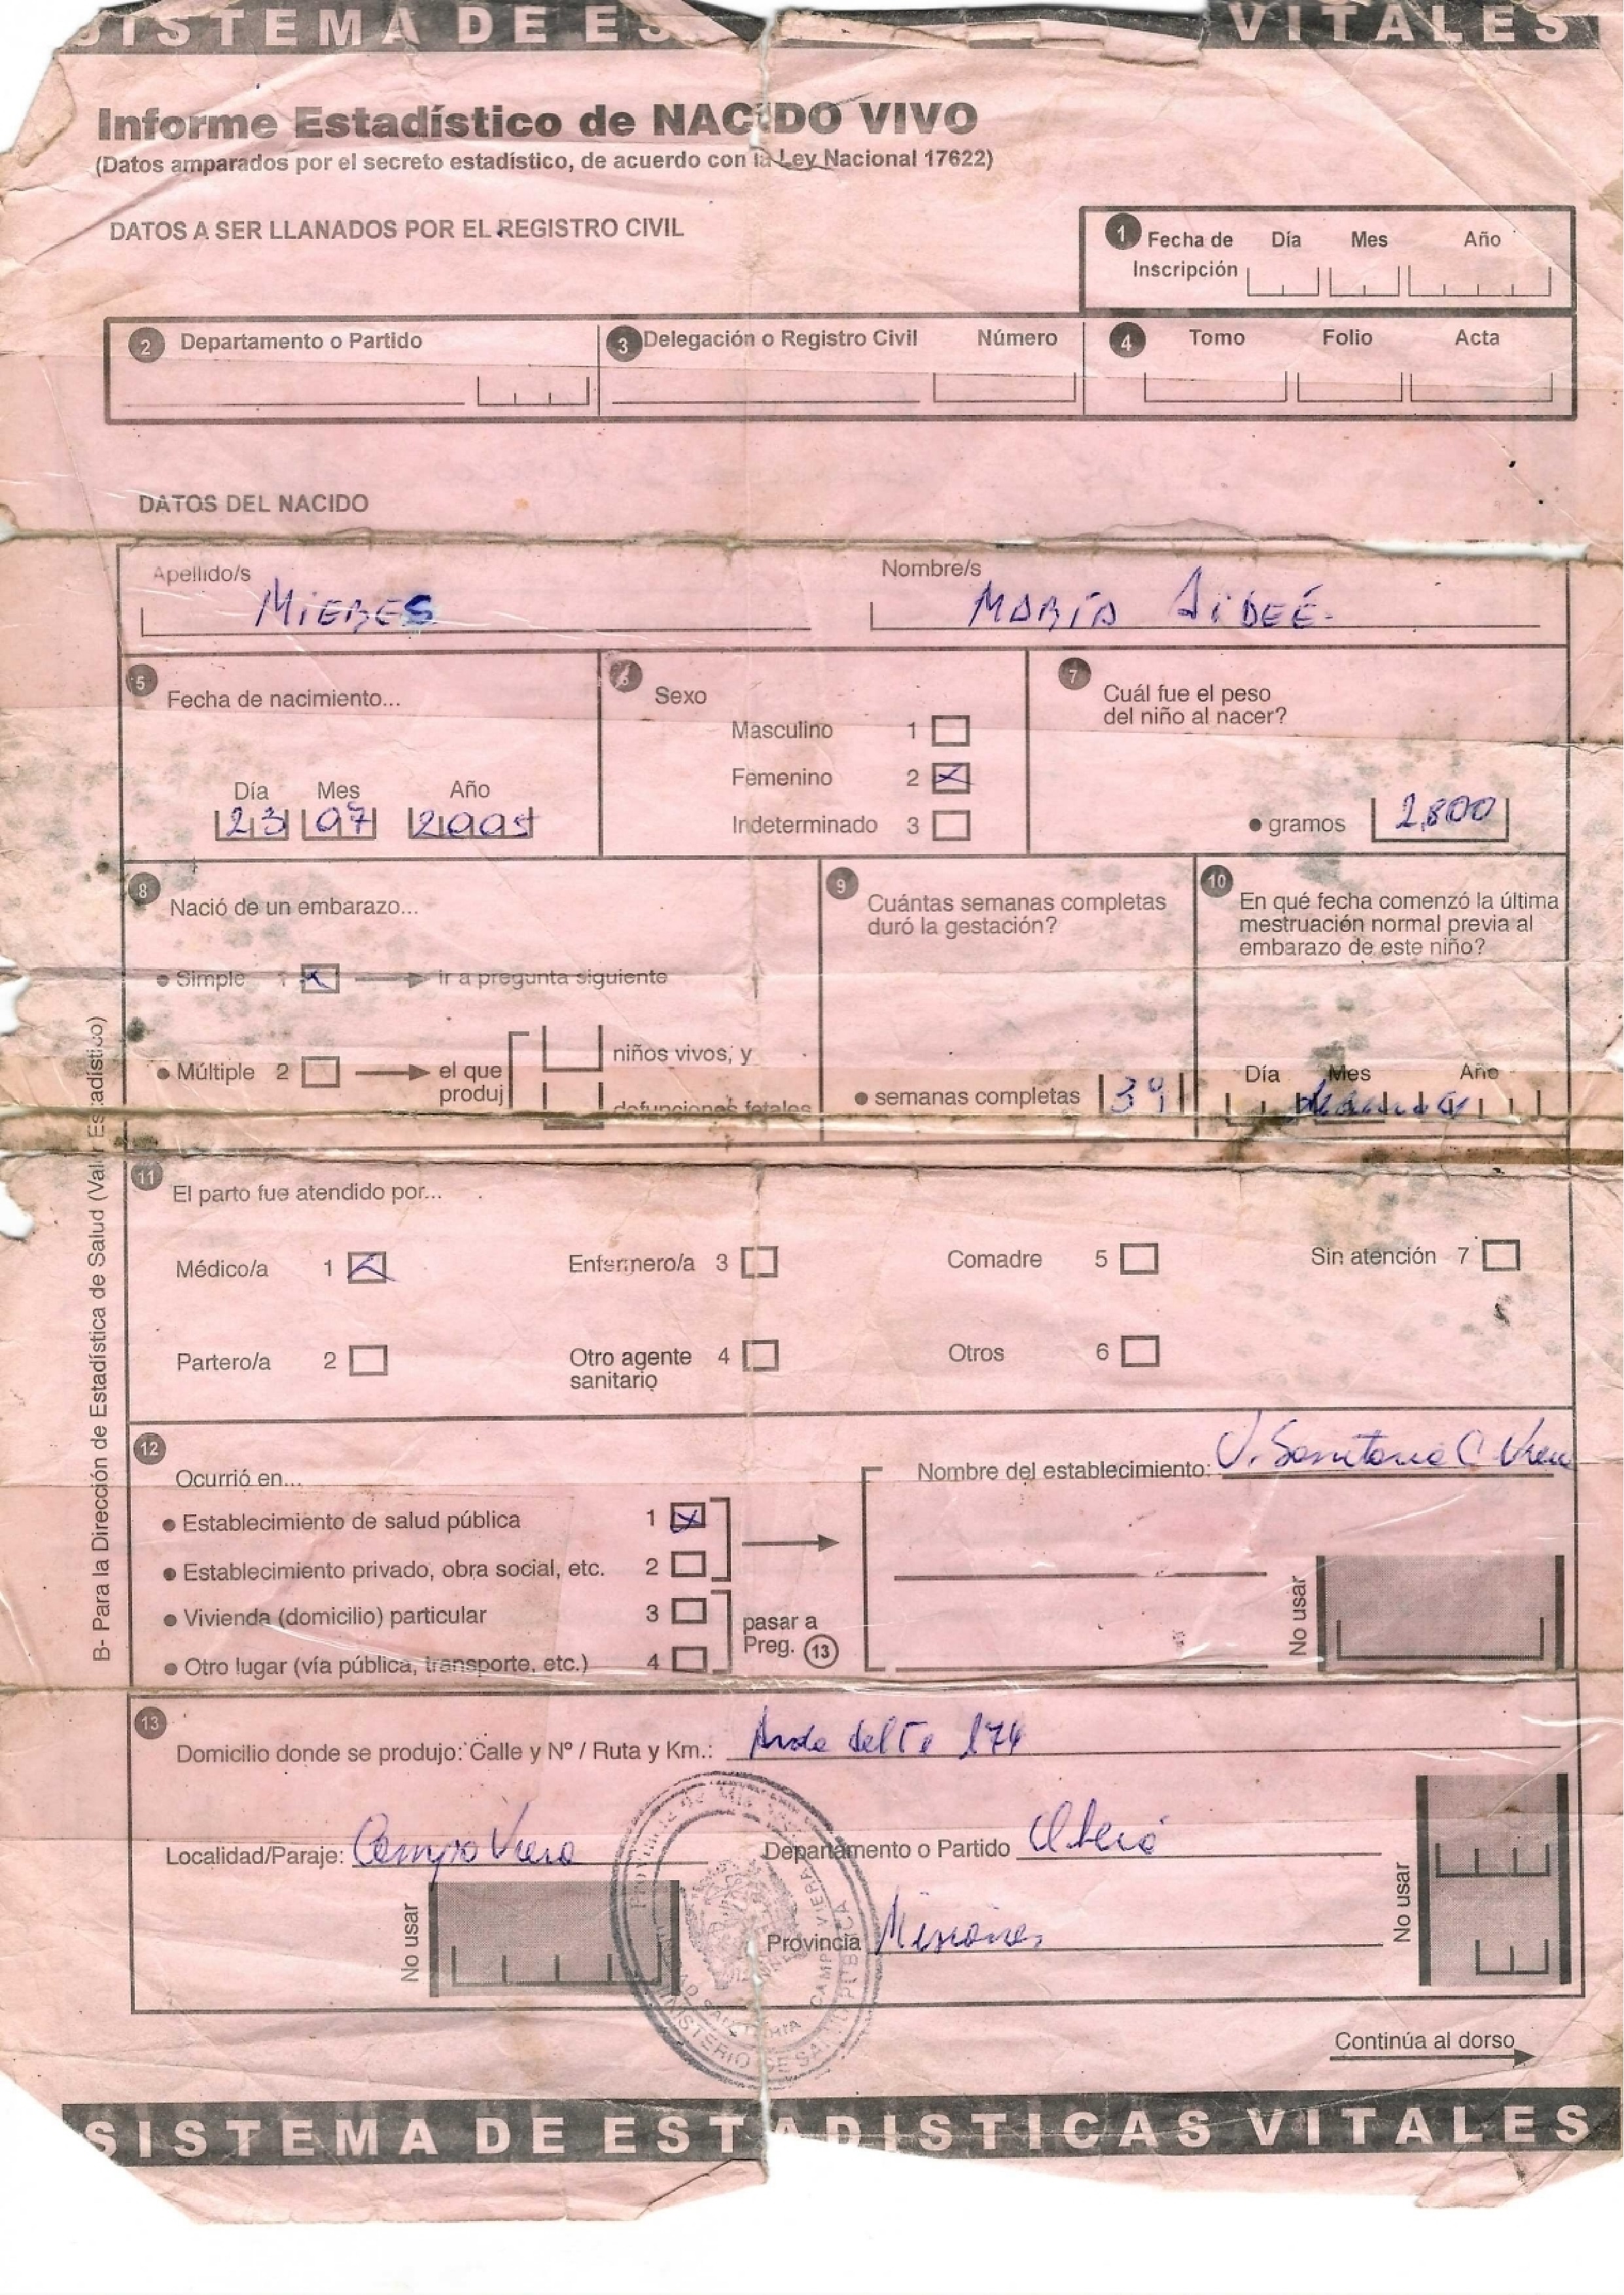 SISTEMA DE ES VITALES
Informe Estadístico de NACIDO VIVO
(Datos amparados por el secreto estadístico, de acuerdo con la Ley Nacional 17622)
DATOS A SER LLANADOS POR EL REGISTRO CIVIL
1 Fecha de Inscripción Día Mes Año
2 Departamento o Partido
3 Delegación o Registro Civil Número
4 Tomo Folio Acta
DATOS DEL NACIDO
Apellido/s Nombre/s
MIERES MARÍA AIDEÉ.
5 Fecha de nacimiento...
Día Mes Año
23 07 2005
6 Sexo
Masculino 1
Femenino 2 X
Indeterminado 3
7 Cuál fue el peso
del niño al nacer?
• gramos 2,800
8 Nació de un embarazo...
• Simple 1 X ir a pregunta siguiente
• Múltiple 2 el que
produj
niños vivos, y
defunciones fetales
9 Cuántas semanas completas
duró la gestación?
• semanas completas 39
10 En qué fecha comenzó la última
mestruación normal previa al
embarazo de este niño?
Día Mes Año
11 El parto fue atendido por...
Médico/a 1 X Enfermero/a 3 Comadre 5 Sin atención 7
Partero/a 2 Otro agente 4 Otros 6
sanitario
12 Ocurrió en...
• Establecimiento de salud pública 1 X
• Establecimiento privado, obra social, etc. 2
• Vivienda (domicilio) particular 3
• Otro lugar (vía pública, transporte, etc.) 4
pasar a
Preg. 13
Nombre del establecimiento: U. Sanitaria C. Viera
No usar
13 Domicilio donde se produjo: Calle y Nº / Ruta y Km.: del Té 174
Localidad/Paraje: Campo Viera Departamento o Partido Oberá
No usar
Provincia Misiones
No usar
PROVINCIA DE MISIONES
SANITARIA CAMPO VIERA
MINISTERIO DE SALUD PUBLICA
Continúa al dorso
B- Para la Dirección de Estadística de Salud (Valor Estadístico)
SISTEMA DE ESTADISTICAS VITALES